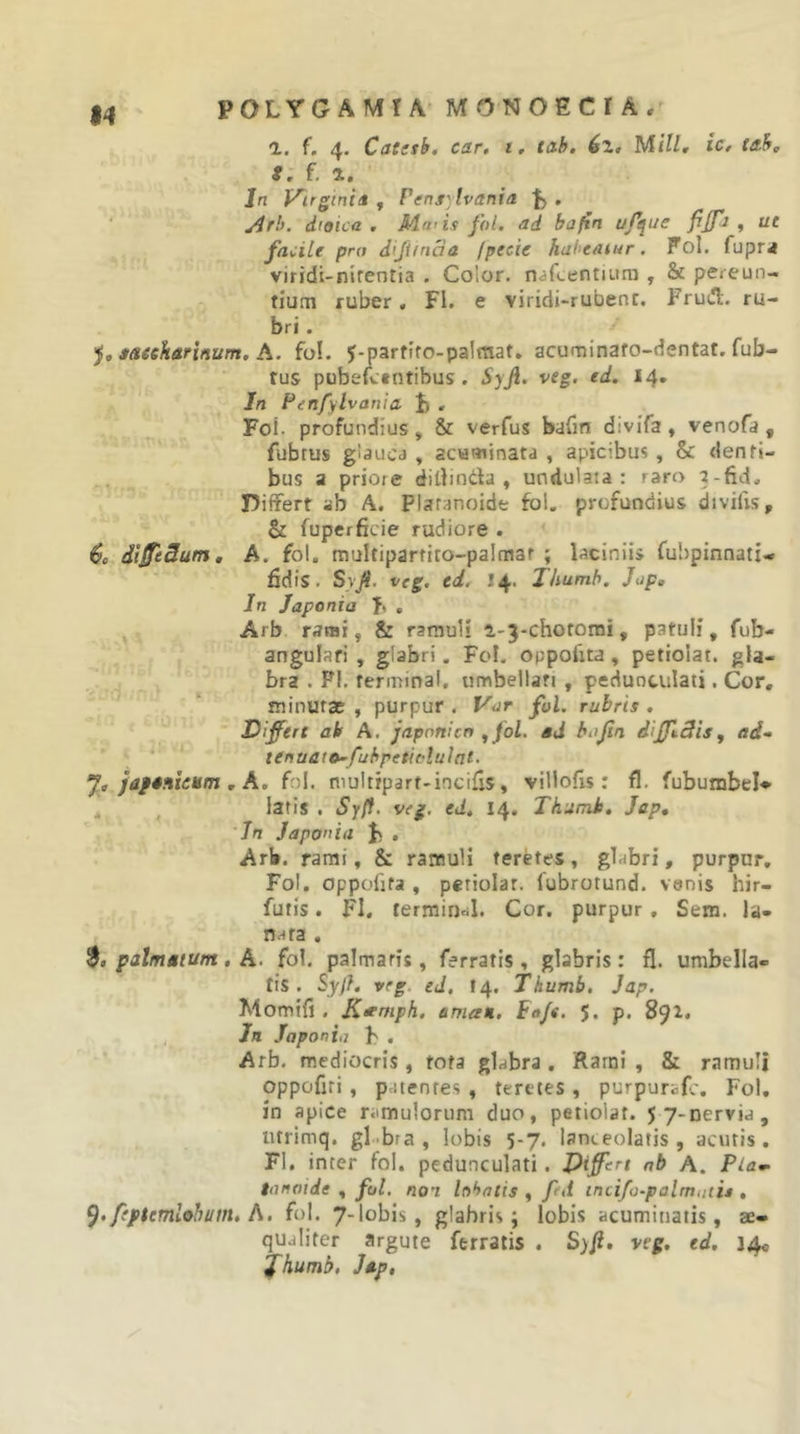 84 POLYGAMIA MONOECIA.
2. f. 4. Catesb. car. 1. tab. 62. Mill. ic. tab.
8. f. 2.
In Virginia, Pensylvania ♄.
Arb. dioica. Maris fol. ad basin usque fissa, ut
facile pro distincta specie habeatur. Fol. supra
viridi-nitentia. Color. nascentium, & pereun-
tium ruber. Fl. e viridi-rubent. Fruct. ru-
bri.
5. saccharinum. A. fol. 5-partito-palmat. acuminato-dentat. sub-
tus pubescentibus. Syst. veg. ed. 14.
In Pensylvania ♄.
Fol. profundius, & versus basin divisa, venosa,
subtus glauca, acuminata, apicibus, & denti-
bus a priore distincta, undulata: raro 3-fid.
Differt ab A. Platanoide fol. profundius divisis,
& superficie rudiore.
6. dissectum. A. fol. multipartito-palmat; laciniis subpinnati-
fidis. Syst. veg. ed. 14. Thumb. Jap.
In Japonia ♄.
Arb. rami, & ramuli 2-3-chotomi, patuli, sub-
angulati, glabri. Fol. opposita, petiolat. gla-
bra. Fl. terminal. umbellati, pedunculati. Cor.
minutæ, purpur. Var fol. rubris.
Differt ab A. japonico, fol. ad basin dissectis, ad-
tenuato-subpetiolulat.
7. japonicum. A. fol. multipart-incisis, villosis: fl. subumbel-
latis. Syst. veg. ed. 14. Thumb. Jap.
In Japonia ♄.
Arb. rami, & ramuli teretes, glabri, purpur.
Fol. opposita, petiolat. subrotund. venis hir-
sutis. Fl. terminal. Cor. purpur. Sem. la-
nata.
8. palmatum. A. fol. palmatis, serratis, glabris: fl. umbella-
tis. Syst. veg. ed. 14. Thumb. Jap.
Momisi. Kæmph. amæn. Fasc. 5. p. 892.
In Japonia ♄.
Arb. mediocris, tota glabra. Rami, & ramuli
oppositi, patentes, teretes, purpurasc. Fol.
in apice ramulorum duo, petiolat. 5 7-nervia,
utrimq. glabra, lobis 5-7. lanceolatis, acutis.
Fl. inter fol. pedunculati. Differt ab A. Pla-
tanoide, fol. non lobatis, sed inciso-palmatis.
9. septemlobum. A. fol. 7-lobis, glabris; lobis acuminatis, æ-
qualiter argute serratis. Syst. veg. ed. 14.
Thumb. Jap.